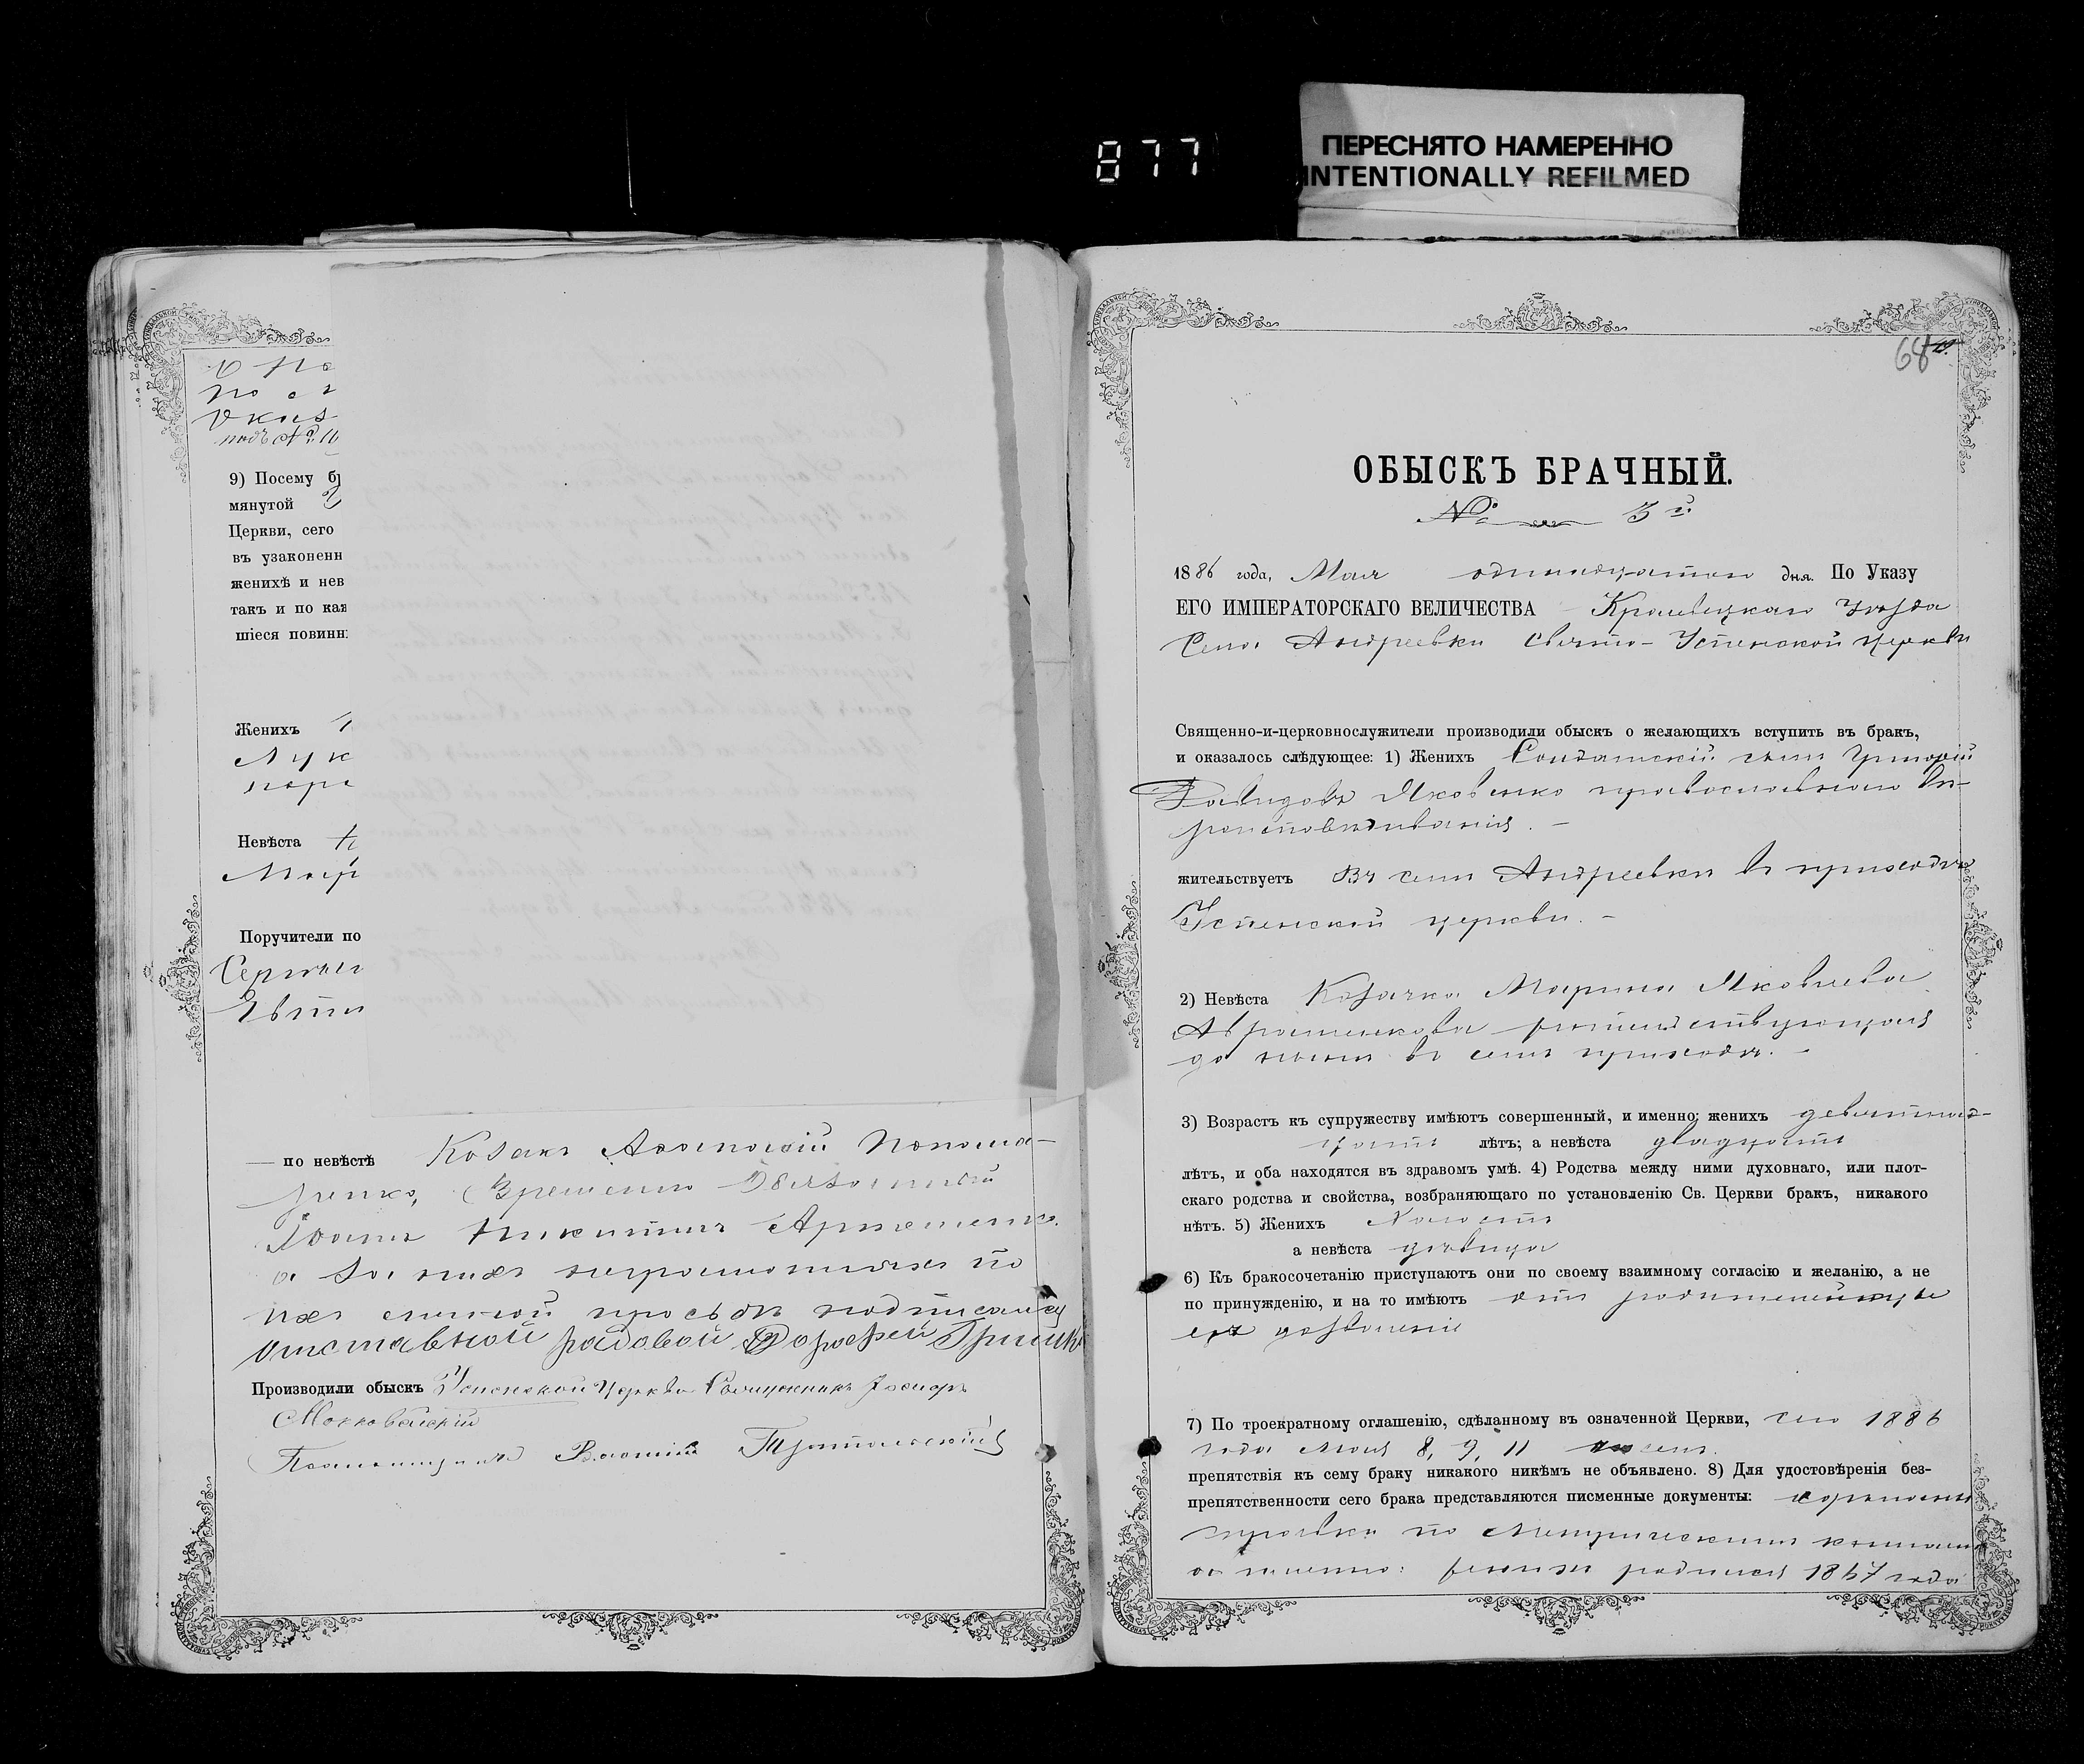 877
ПЕРЕСНЯТО НАМЕРЕННО
INTENTIONALLY REFILMED
о по
по
подъ №
9) Посему
мянутой
Церкви, сего
въ узаконенн
женихѣ и нев
такъ и по
шіеся повинн
Женихъ
Лук
Невѣста
Мар
Поручители по
Евти
— по невѣстѣ Козакъ Аѳанасій Понома-
ренко, Временно Обязанный
Іоаннъ Никитинъ
а за нихъ неграмотныхъ по
ихъ личной прозьбѣ подписался
отставной рядовой Дорофей
Производили обыскъ Успенской Церкви Священникъ
Псаломщикъ
68
ОБЫСКЪ БРАЧНЫЙ.
№ 3й
1886 года, Мая одинадцатого дня. По Указу
ЕГО ИМПЕРАТОРСКАГО ВЕЛИЧЕСТВА Кролевецкаго Уѣзда
Села Андреевки Свято-Успенской церкви
Священно-и-церковнослужители производили обыскъ о желающихъ вступить въ бракъ,
и оказалось слѣдующее: 1) Женихъ Солдатскій сынъ Григорій
Давидовъ Яковенко православнаго вѣ-
роисповѣдыванія. —
жительствуетъ Въ селѣ Андреевки въ приходѣ
Успенской церкви. —
2) Невѣста Козачка Марина Яковлева
жительствующая
до нынѣ въ семъ приходѣ. —
3) Возрастъ къ супружеству имѣютъ совершенный, и именно: женихъ девятнад-
цать лѣтъ; а невѣста двадцать
лѣтъ, и оба находятся въ здравомъ умѣ. 4) Родства между ними духовнаго, или плот-
скаго родства и свойства, возбраняющаго по установленію Св. Церкви бракъ, никакого
нѣтъ. 5) Женихъ Холостъ
а невѣста дѣвица
6) Къ бракосочетанію приступаютъ они по своему взаимному согласію и желанію, а не
по принужденію, и на то имѣютъ отъ родителей
дозволеніе
7) По троекратному оглашенію, сдѣланному въ означенной Церкви, сего 1886
года Мая 8, 9, 11 чиселъ.
препятствія къ сему браку никакого никѣмъ не объявлено. 8) Для удостовѣренія без-
препятственности сего брака представляются писменные документы:
справка по Метрическимъ книгамъ
а именно: женихъ родился 1867 года